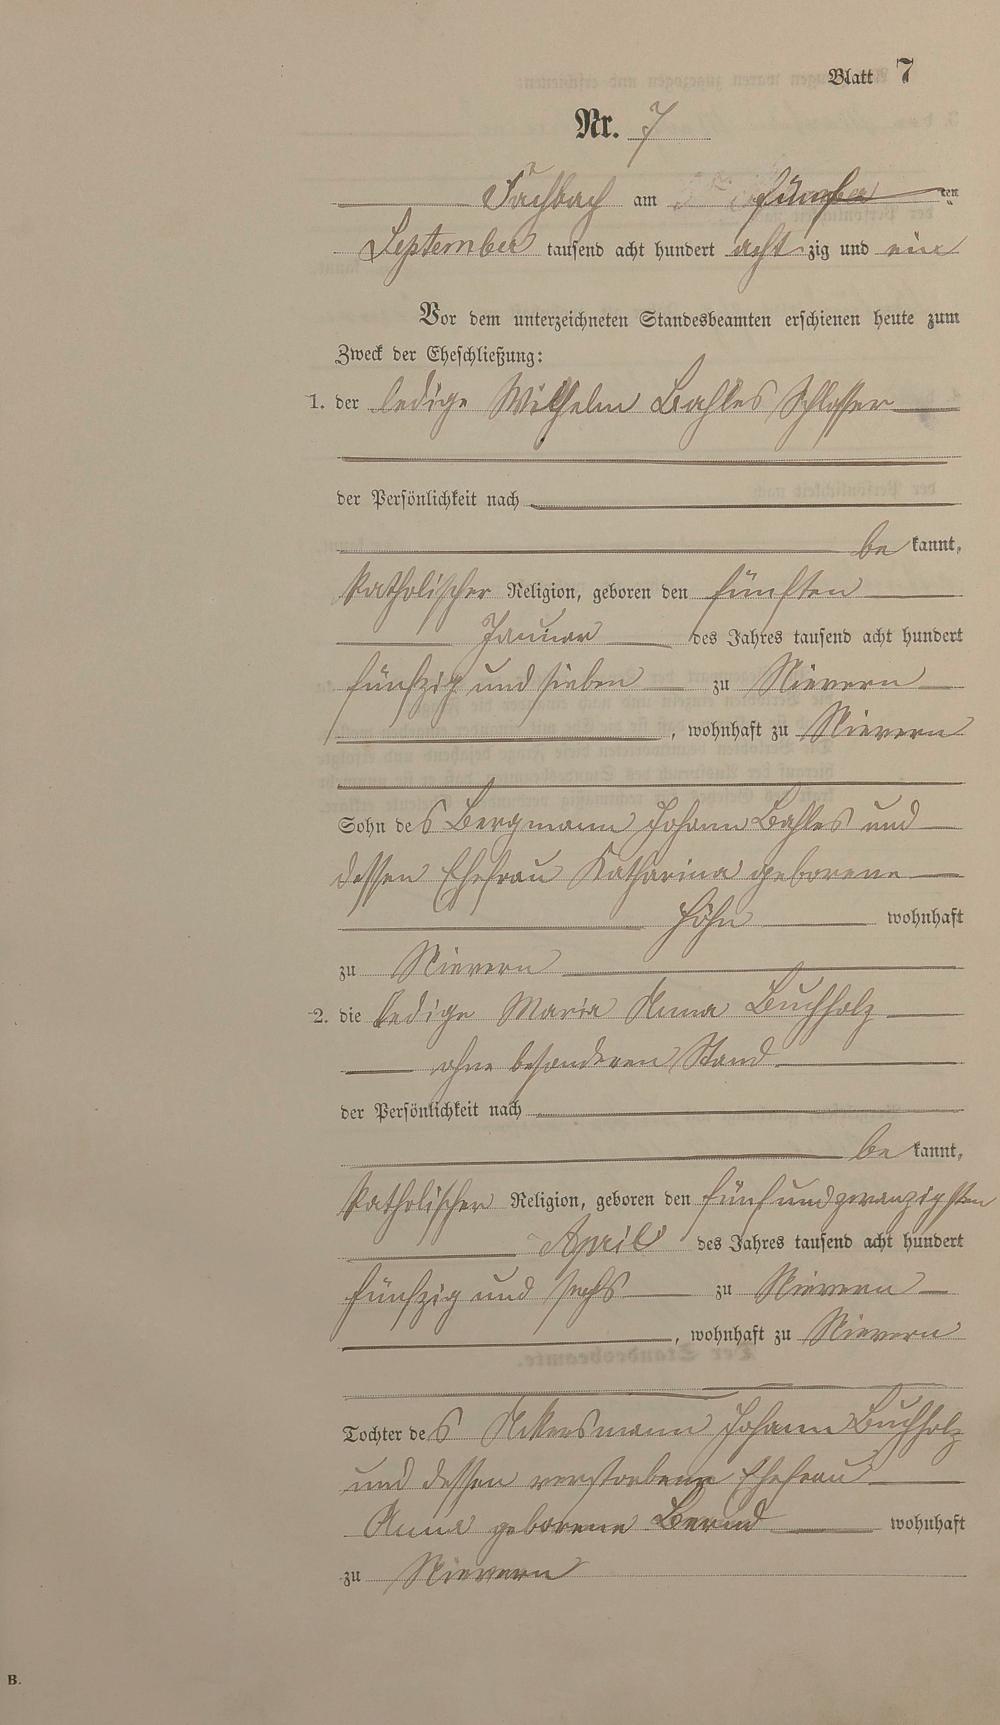 Blatt 7
Nr. 7
Fachbach am ten
September tausend acht hundert acht zig und ein
Vor dem unterzeichneten Standesbeamten erschienen heute zum
Zweck der Eheschließung:
1. der ledige Wilhelm Bahles Schlosser
der Persönlichkeit nach
be kannt,
katholischer Religion, geboren den fünften
Januar des Jahres tausend acht hundert
fünfzig und sieben zu Nievern
, wohnhaft zu Nievern
Sohn des Bergmann Johann Bahles und
dessen Ehefrau Katharina geborene
Höhn wohnhaft
zu Nievern
2. die ledige Maria Anna Buchholz
ohne besonderen Stand
der Persönlichkeit nach
be kannt,
katholischer Religion, geboren den fünfundzwanzigsten
April des Jahres tausend acht hundert
fünfzig und sechs zu Nievern
, wohnhaft zu Nievern
Tochter des Ackersmann Johann Buchholz
und dessen verstorbene Ehefrau
Anna geborene Bernd wohnhaft
zu Nievern
B.